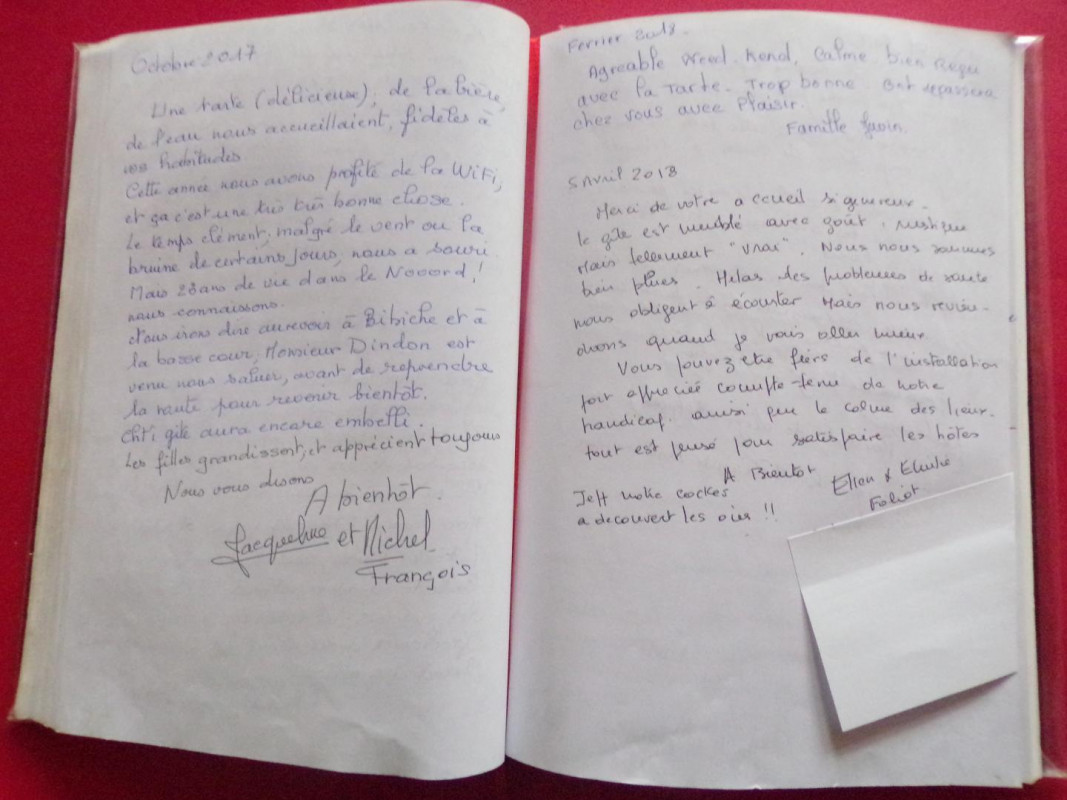 Octobre 2017
Une tarte (délicieuse), de la bière,
de l'eau nous accueillaient, fidèles à
vos habitudes
Cette année nous avons profité de la WiFi,
et ça c'est une très très bonne chose.
Le temps clément, malgré le vent ou la
bruine de certains jours, nous a souri.
Mais 28 ans de vie dans le Nooord !
nous connaissons.
Nous irons dire aurevoir à Bibiche et à
la basse cour, Monsieur Dindon est
venu nous saluer, avant de reprendre
la route pour revenir bientôt.
Chti gite aura encore embelli.
Les filles grandissent, et apprécient toujours
Nous vous disons
A bientôt.
Jacqueline et Michel
François
Fevrier 2018.
Agreable Weed. Kend, Calme, bien Reçu
avec la Tarte. Trop bonne Ont repassera
chez vous avec Plaisir.
Famille
5 Avril 2018
Merci de votre accueil si genereux.
le gîte est meublé avec goût, rustique
Mais tellement "vrai". Nous nous sommes
bien plues. Helas des problemes de sante
nous obligent à ecourter Mais nous revien-
drons quand je vais aller mieux
Vous pouvez etre fiers de l'installation
fort apprecié compte-tenu de notre
handicap. ainsi que le calme des lieux.
tout est pensé pour satisfaire les hôtes
A Bientot
Ellen &
Foliot
Jeff notre cocker
a decouvert les oies !!